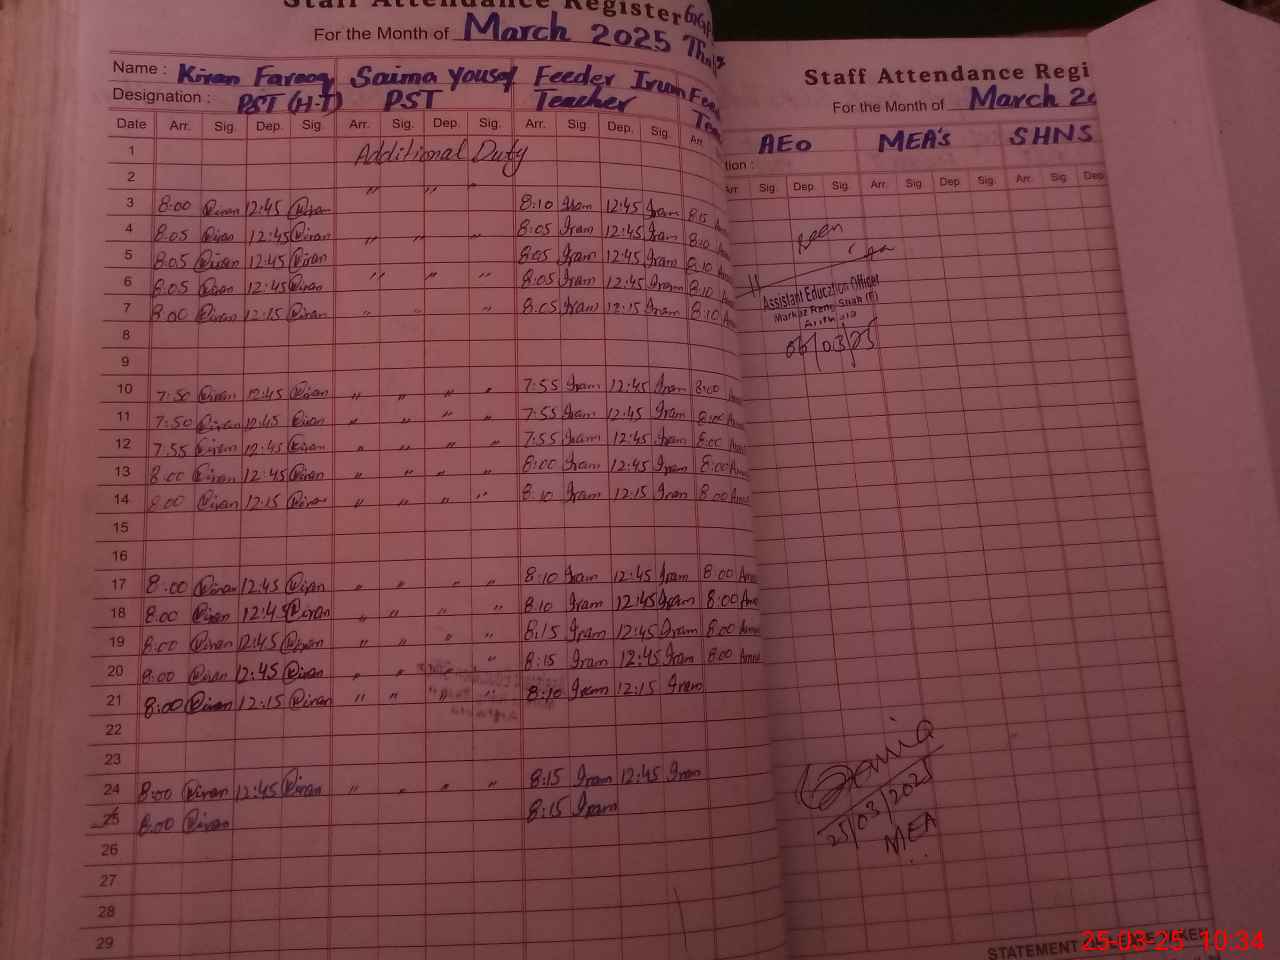 Staff Attendance Register
For the Month of March 2025
Name : Kiran Farooq Saima Yousaf Feeder Irum Fee
Designation : PST (H-T) PST Teacher Tea
Date Arr. Sig. Dep. Sig. Arr. Sig. Dep. Sig. Arr. Sig. Dep. Sig. Arr
1 Additional Duty
2 " " "
3 8:00 Kiran 12:45 Kiran 8:10 Iram 12:45 Iram 8:15
4 8:05 Kiran 12:45 Kiran " " " 8:05 Iram 12:45 Iram 8:10
5 8:05 Kiran 12:45 Kiran 8:05 Iram 12:45 Iram 8:10
6 8:05 Kiran 12:45 Kiran " " " 8:05 Iram 12:45 Iram 8:10
7 8:00 Kiran 12:15 Kiran " " " 8:05 Iram 12:15 Iram 8:10
8
9
10 7:50 Kiran 12:45 Kiran " " " " 7:55 Iram 12:45 Iram 8:00
11 7:50 Kiran 12:45 Kiran " " " " 7:55 Iram 12:45 Iram 8:00
12 7:55 Kiran 12:45 Kiran " " " " 7:55 Iram 12:45 Iram 8:00
13 8:00 Kiran 12:45 Kiran " " " " 8:00 Iram 12:45 Iram 8:00
14 8:00 Kiran 12:15 Kiran " " " " 8:10 Iram 12:15 Iram 8:00
15
16
17 8:00 Kiran 12:45 Kiran " " " " 8:10 Iram 12:45 Iram 8:00
18 8:00 Kiran 12:45 Kiran " " " 8:10 Iram 12:45 Iram 8:00
19 8:00 Kiran 12:45 Kiran " " " " 8:15 Iram 12:45 Iram 8:00
20 8:00 Kiran 12:45 Kiran " " " " 8:15 Iram 12:45 Iram 8:00
21 8:00 Kiran 12:15 Kiran " " " " 8:10 Iram 12:15 Iram
22
23
24 8:00 Kiran 12:45 Kiran " " " " 8:15 Iram 12:45 Iram
25 8:00 Kiran 8:15 Iram
26
27
28
29
Staff Attendance Regi
For the Month of March 20
AEO MEA's SHNS
tion :
Arr. Sig. Dep. Sig. Arr. Sig. Dep. Sig. Arr. Sig. Dep
Seen
Assistant Education Officer
06/03/25
25/03/2025
MEA
STATEMENT
25-03-25 10:34